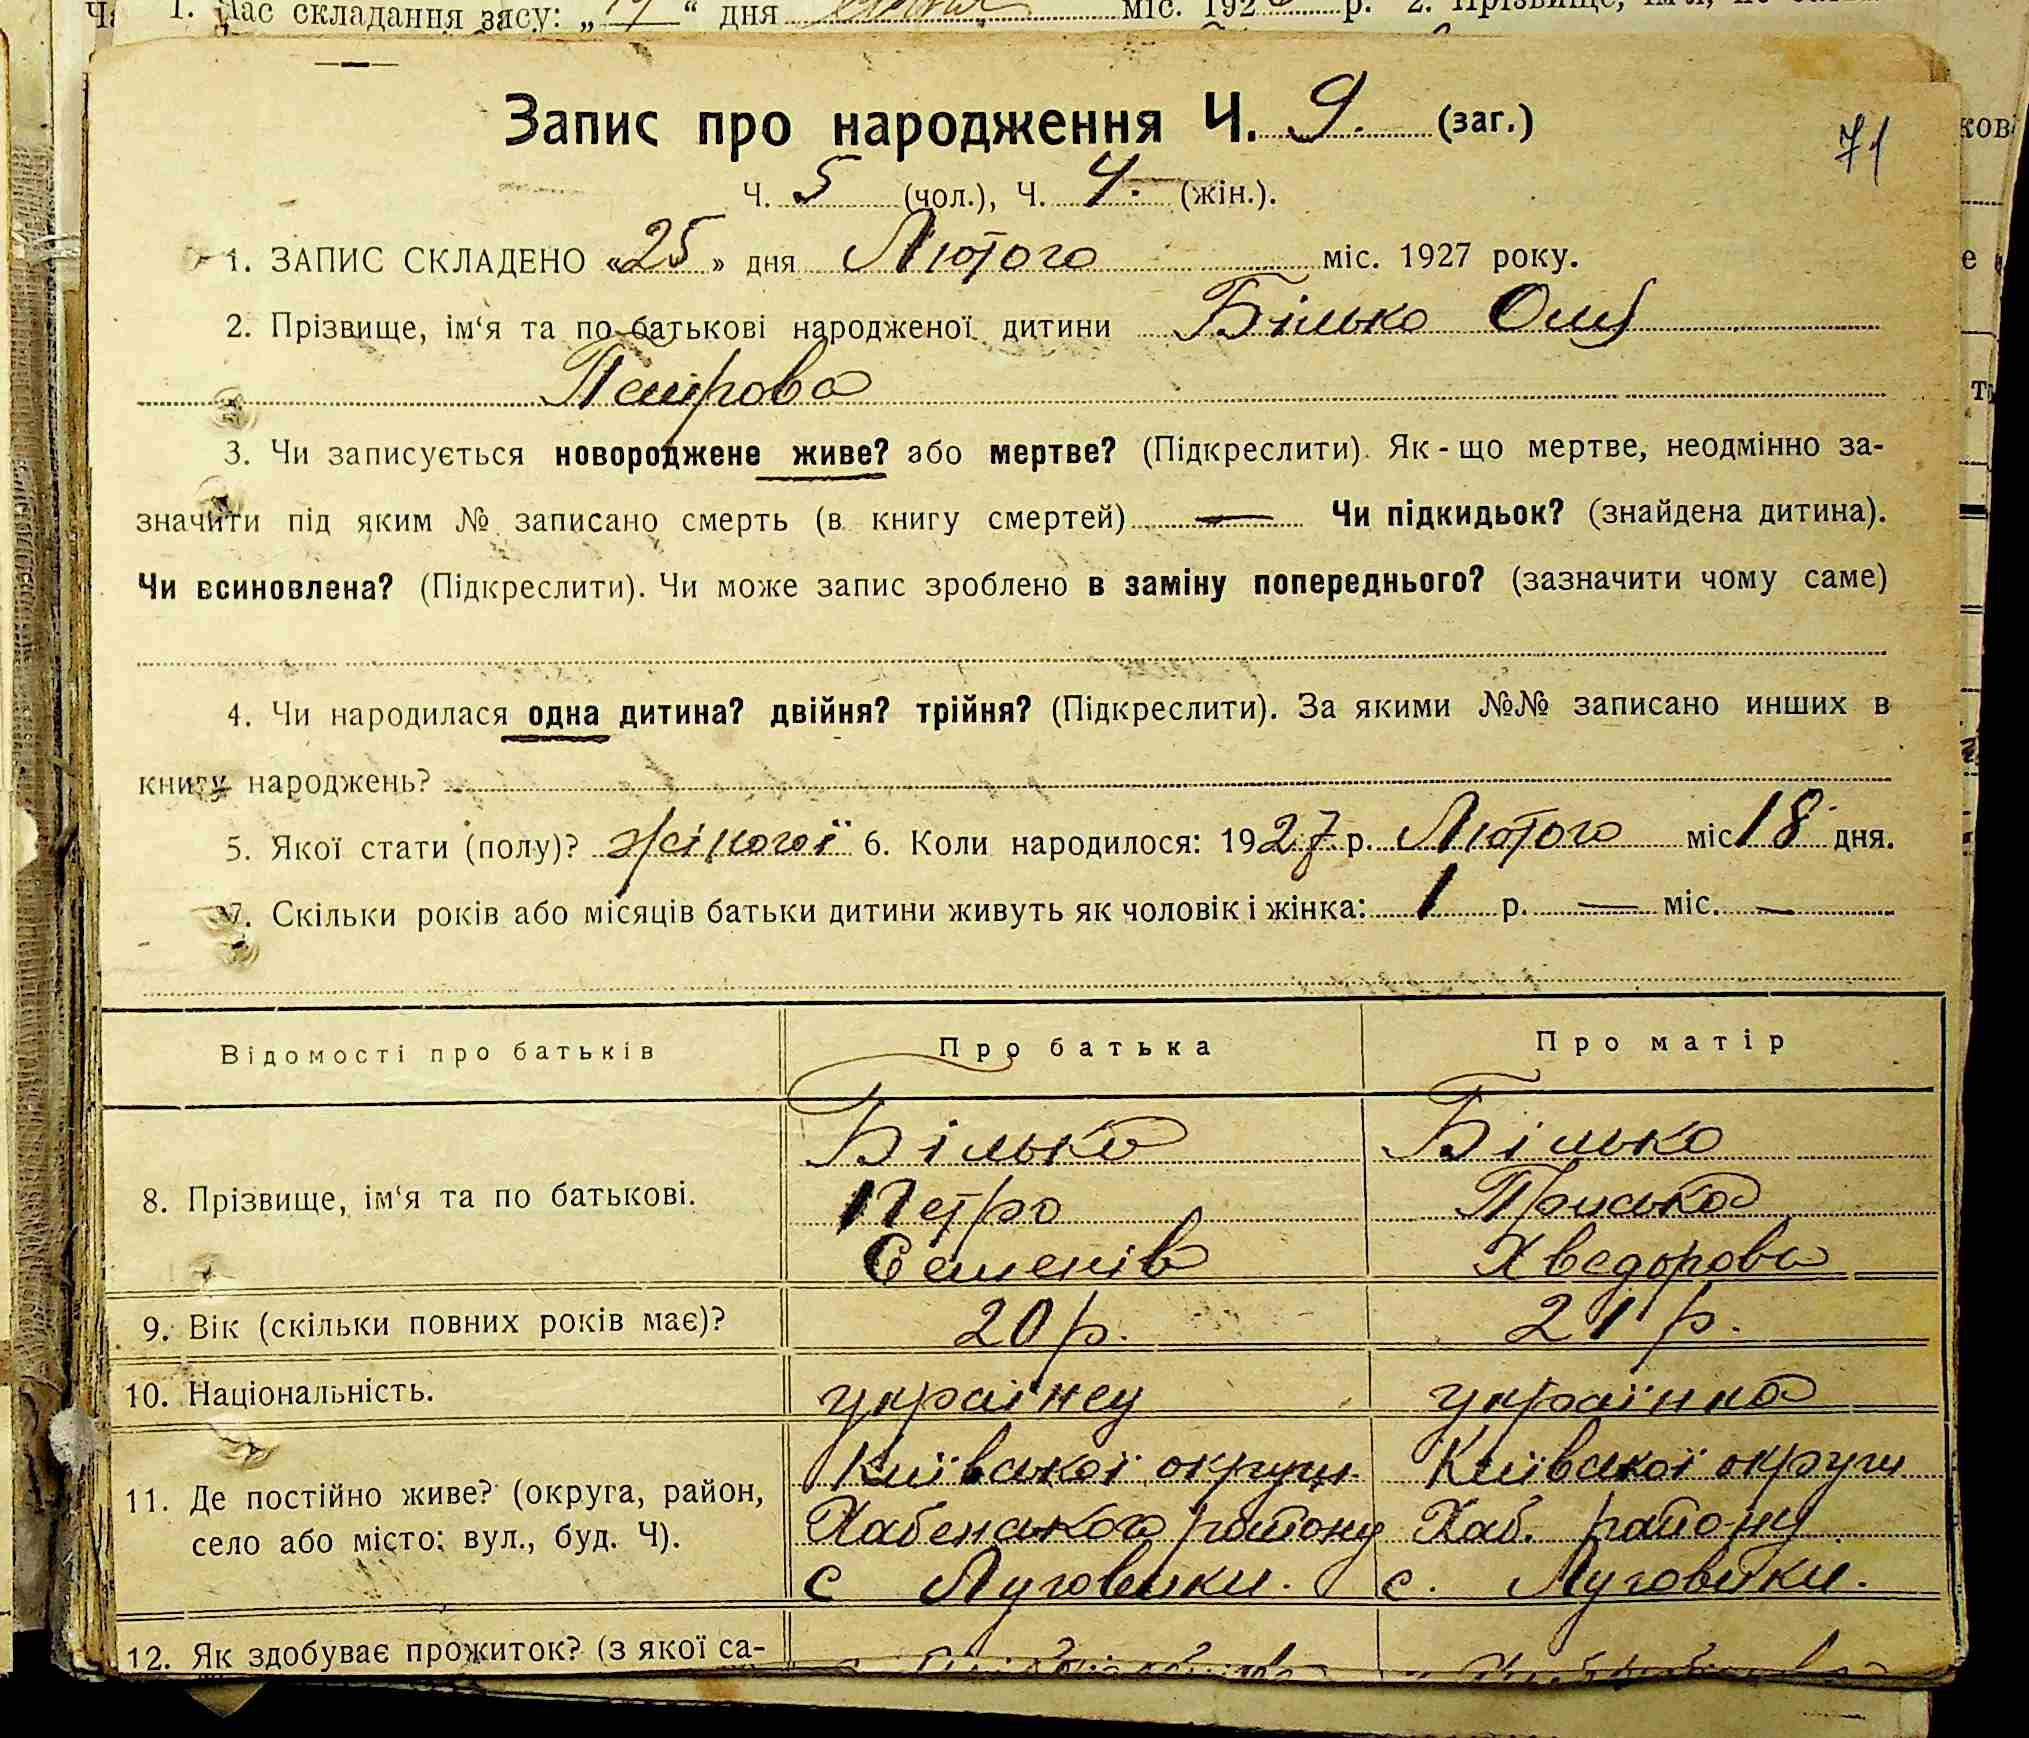 1. Час складання засу: „19“ дня міс. 192 р. 2. Прізвище, ім'я, по
Запис про народження Ч. 9. (заг.)
71
Ч. 5 (чол.), Ч. 4. (жін.).
1. ЗАПИС СКЛАДЕНО «25» дня Лютого міс. 1927 року.
2. Прізвище, ім‘я та по батькові народженої дитини Білько Олю
Петрова
3. Чи записується новороджене живе? або мертве? (Підкреслити). Як-що мертве, неодмінно за-
значити під яким № записано смерть (в книгу смертей) — Чи підкидьок? (знайдена дитина).
Чи всиновлена? (Підкреслити). Чи може запис зроблено в заміну попереднього? (зазначити чому саме)
4. Чи народилася одна дитина? двійня? трійня? (Підкреслити). За якими №№ записано инших в
книгу народжень?
5. Якої стати (полу)? жіночої 6. Коли народилося: 1927 р. Лютого міс 18 дня.
7. Скільки років або місяців батьки дитини живуть як чоловік і жінка: 1 р. — міс. —
Відомості про батьків Про батька Про матір
Білько Білько
8. Прізвище, ім‘я та по батькові. Петро Приська
Семенів Хведорова
9. Вік (скільки повних років має)? 20 р. 21 р.
10. Національність. українец українка
Київської округи Київської округи
11. Де постійно живе? (округа, район, Хабенського району Хаб. району
село або місто; вул., буд. Ч). с Луговики. с. Луговики.
12. Як здобуває прожиток? (з якої са-